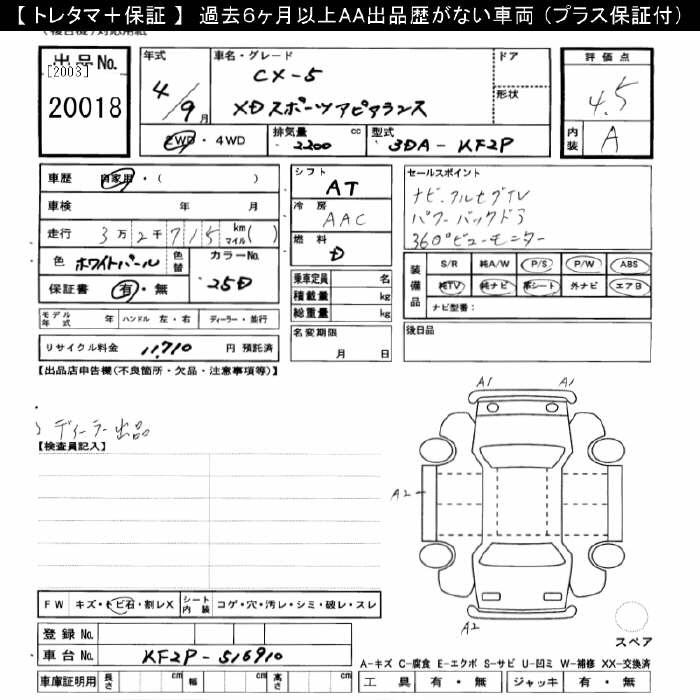 【 トレタマ＋保証 】 過去6ヶ月以上AA出品歴がない車両 (プラス保証付)
出品No. [2003] 20018
年式 4/9月
車名・グレード CX-5
XDスポーツアピアランス
ドア
形状
2WD・4WD
排気量 2200 cc
型式 3DA-KF2P
評価点 4.5
内装 A
車歴 自家用・( )
車検 年 月
走行 3万2千715 km マイル( )
色 ホワイトパール 色替
カラーNo. 25D
保証書 有・無
シフト AT
冷房 AAC
燃料 D
乗車定員 名
積載量 kg
総重量 kg
名変期限 月 日
セールスポイント
ナビ、フルセグTV
パワーバックドア
360°ビューモニター
装備品
S/R 純A/W P/S P/W ABS
純TV 純ナビ 革シート 外ナビ エアB
ナビ型番:
後日品
モデル年式 年 ハンドル 左・右 ディーラー・並行
リサイクル料金 11,710 円 預託済
【出品店申告機(不良箇所・欠品・注意事項等)】
ディーラー出品
【検査員記入】
A1 A1
A2
A2
スペア
FW キズ・トビ石・割レX シート内装 コゲ・穴・汚レ・シミ・破レ・スレ
登録 No.
車台 No. KF2P-516910
車庫証明用 長さ cm 幅 cm 高さ cm
A-キズ C-腐食 E-エクボ S-サビ U-凹ミ W-補修 XX-交換済
工具 有・無 ジャッキ 有・無